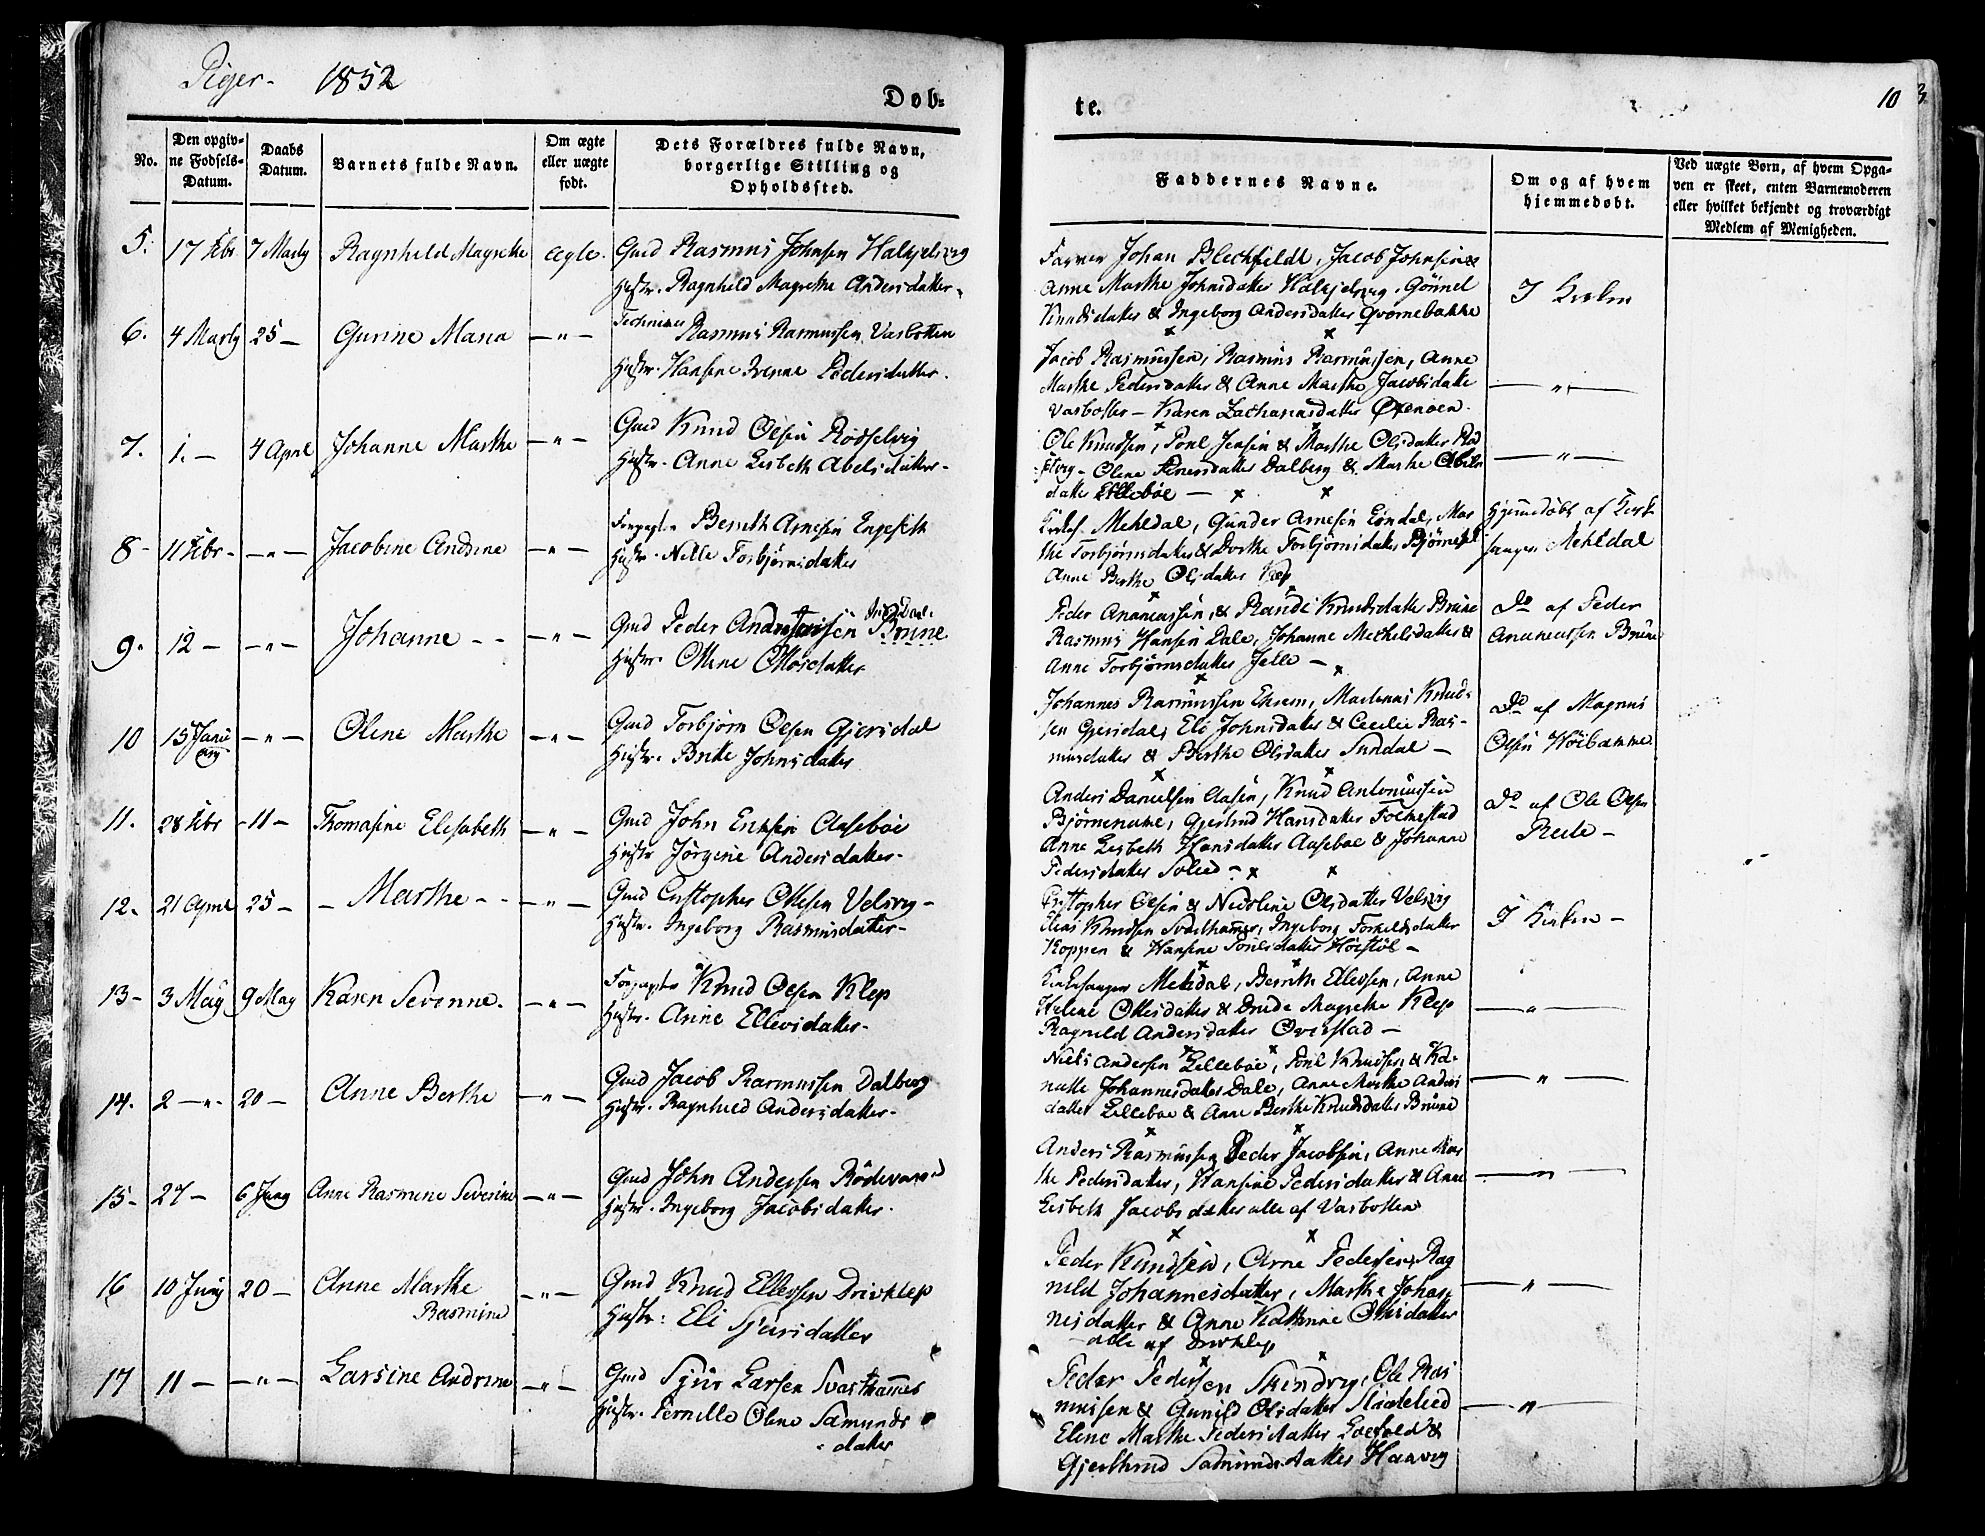 Piger - 1852
Døb-
te.
10
No.
Den opgiv-
ne Fødsels-
Datum.
Daabs
Datum.
Barnets fulde Navn.
Om ægte
eller uægte
født.
Dets Forældres fulde Navn,
borgerlige Stilling og
Opholdssted.
Faddernes Navne.
Om og af hvem
hjemmedøbt.
Ved uægte Børn, af hvem Opga-
ven er skeet, enten Barnemoderen
eller hvilket bekjendt og troværdigt
Medlem af Menigheden.
5. 17 Febr 7 Marty Ragnhild Magrethe ægte. Gmd Rasmus Johnsen Halkjelsvig
Hustr. Ragnhild Magrethe Andersdatter.
Johan Blechfeldt, Jacob Johnsen &
Anne Marthe Johnsdatter Halkjelsvig. Gønnel
Knudsdatter & Ingeborg Andersdatter Qvornebakke
I Kirken
6. 4 Marty 25 - Gurine Maria -"- Rasmus Rasmussen Vasbotten
Hustr. Hansine Pedersdatter.
Jacob Rasmussen, Rasmus Rasmussen, Anne
Marthe Pedersdatter & Anne Marthe Jacobsdatte
Vasbotten - Karen Zachariasdatter
-"-
7. 1. - 4 April Johanne Marthe -"- Gmd Knud Olsen Rødselvig
Hustr. Anne Lisbeth Abelsdatter -
Ole Knudsen, Poul Jensen & Marthe Olsdatter Rød
selvig - Olene Dalberg & Marthe Abels
datte Lillebøe -
-"-
8 - 11 Febr - -"- Jacobine Andrine -"- Forpagter Bernth Arnesen Engeseth
Hustr. Nille Torbjørnsdatter
Mehldal, Gunder Arnesen Løndal, Mar
the Torbjørnsdatter & Dorthe Torbjørnsdatter
Anne Berthe Olsdatter Klep
Hjemmedøbt af Kirke
sanger Mehldal
9. 12 - -"- Johanne - - -"- Gmd Peder Brune
Hustr. Oline Olsdatter
Peder Ananiassen, & Randi Knudsdatte Brune
Rasmus Hansen Dale, Johanne Mechelsdatter &
Anne Torbjørnsdatter
Do af Peder
Ananiassen Brune
10 15 Janu
ary -"- Oline Marthe -"- Gmd Torbjørn Olsen Gjersdal
Hustr. Brite Johnsdatter
Johannes Rasmussen Ekrem, Martinus Knud-
sen Gjersdal, Eli Johnsdatter & Cecilie Ras-
musdatter & Berthe Olsdatter Sundal -
Do af Magnus
Olsen
11. 28 Febr - 11 - Thomasine Elisabeth -"- Gmd John Ericksen Aasebøe
Hustr Jørgine Andersdatter.
Anders Danielsen Aasen, Knud Antoniussen
Gjertrud Hansdatter Folkestad
Anne Lisbeth Hansdatter Aasebøe & Johanne
Pedersdatter
Do af Ole Olsen
12. 21 April 25 - - Marthe - - -"- Gmd Cristopher Ottesen Velsvig -
Hustr. Ingeborg Rasmusdatter -
Cristopher Olsen & Nicoline Olsdatter Velsvig
Elias Knudsen Svarthamer, Ingeborg Torkelsdatter
Koppen & Hansine
I Kirken -
13 - 3 May 9 May Karen Severine. -"- Forpagter Knud Olsen Klep
Hustr. Anne Ellevsdatter -
Kirkesanger Mehldal, Bernth Ellefsen, Anne
Helene Ottesdatter & Drude Magrethe Klep
Ragnild Andersdatter Ovrestad -
-"-
14. 2 -"- 20 - Anne Berthe -"- Gmd Jacob Rasmussen Dalberg
Hustr. Ragnhild Andersdatter -
Niels Andersen Lillebøe, Poul Knudsen & Ka-
nutte Johannesdatter Dale, Anne Marthe Anders
datter Lillebøe & Anne Berthe Knudsdatter Brune
-"-
15 - 27 - 6 Juny Anne Rasmine Severine -"- Gmd John Andersen Rødevand
Hustr. Ingeborg Jacobsdatter.
Anders Rasmussen Peder Jacobsen, Anne Mar
the Pedersdatter, Hansine Pedersdatter & Anne
Lisbeth Jacobsdatter alle af Vasbotten
-"-
16 10 Juny 20 - Anne Marthe
Rasmine -"- Gmd Knud Ellefsen Drivklep
Hustr: Eli Sjursdatter
Peder Knudsen, Arne Pedersen, Rag
nild Johannesdatter, Marthe Johan
nesdatter & Anne Katrine Olsdatter
alle af Drivklep
-"-
17 11 - -"- Larsine Andrine -"- Gmd Sjur Larsen Svarthamer
Hustr. Pernille Oline Samunds
datter
Peder Pedersen Skindvig, Ole Ras
mussen & Gunild Olsdatter
Eline Marthe Pedersdatter &
Gjertrud Samundsdatter Haavig
-"-